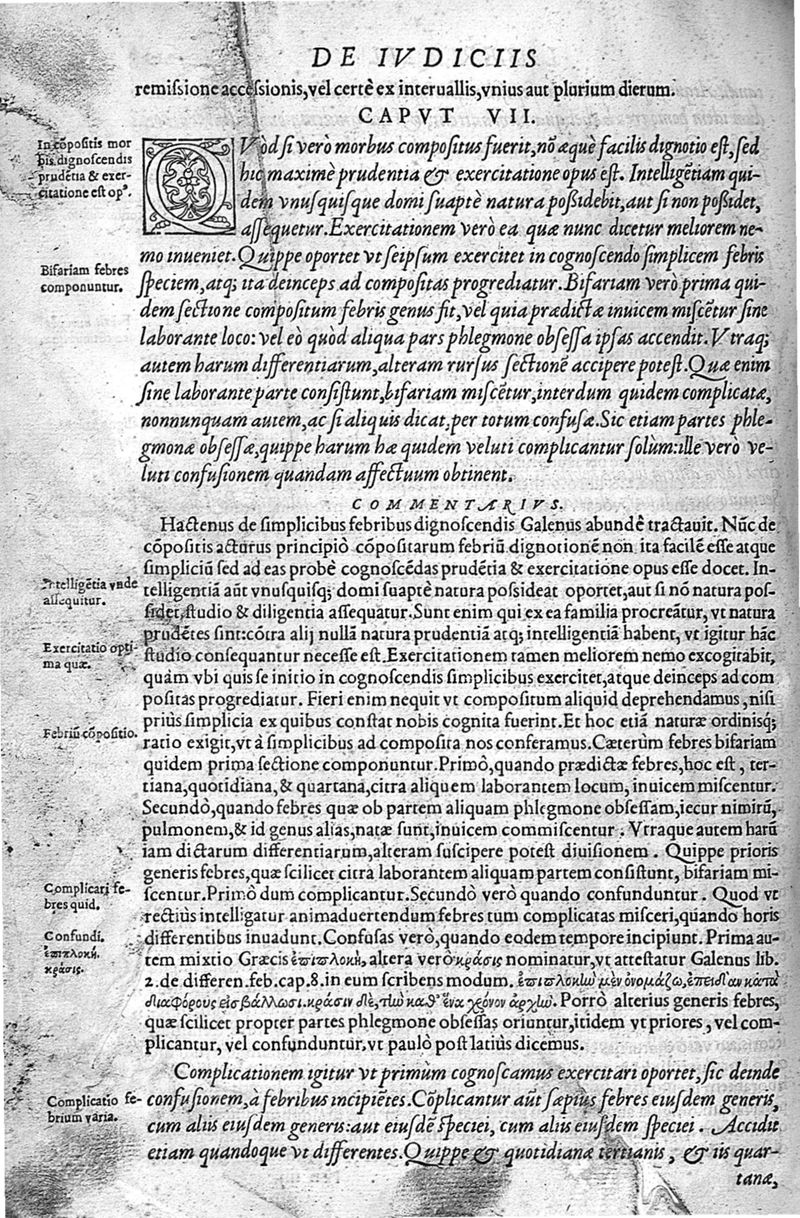 DE IVDICIIS
remissione accessionis, vel certè ex interuallis, vnius aut plurium dierum.
CAPVT VII.
In cõpositis mor
bis dignoscendis
prudẽtia & exer-
citatione est opꝰ.
QVòd si verò morbus compositus fuerit, nõ æquè facilis dignotio est, sed
hic maximè prudentia & exercitatione opus est. Intelligẽtiam qui-
dem vnusquisque domi suaptè natura poßidebit, aut si non poßidet,
assequetur. Exercitationem verò ea quæ nunc dicetur meliorem ne-
mo inueniet. Quippe oportet vt seipsum exercitet in cognoscendo simplicem febris
Bifariam febres
componuntur.
speciem, atq; ita deinceps ad compositas progrediatur. Bifariam verò prima qui-
dem sectione compositum febris genus fit, vel quia prædictæ inuicem miscẽtur sine
laborante loco: vel eò quòd aliqua pars phlegmone obsessa ipsas accendit. Vtraq;
autem harum differentiarum, alteram rursus sectionẽ accipere potest. Quæ enim
sine laborante parte consistunt, bifariam miscẽtur, interdum quidem complicatæ,
nonnunquam autem, ac si aliquis dicat, per totum confusæ. Sic etiam partes phle-
gmonæ obsessæ, quippe harum hæ quidem veluti complicantur solùm: ille verò ve-
luti confusionem quandam affectuum obtinent.
COMMENTARIVS.
Hactenus de simplicibus febribus dignoscendis Galenus abundè tractauit. Nũc de
cõpositis acturus principiò cõpositarum febriũ dignotionẽ non ita facilẽ esse atque
simpliciũ sed ad eas probè cognoscẽdas prudẽtia & exercitatione opus esse docet. In-
Intelligẽtia vnde
assequitur.
telligentiã aũt vnusquisq; domi suaptè natura possideat oportet, aut si nõ natura pos-
sidet, studio & diligentia assequatur. Sunt enim qui ex ea familia procreãtur, vt natura
prudẽtes sint: cõtra alij nullã natura prudentiã atq; intelligentiã habent, vt igitur hãc
Exercitatio opti-
ma quæ.
studio consequantur necesse est. Exercitationem tamen meliorem nemo excogitabit,
quàm vbi quis se initio in cognoscendis simplicibus exercitet, atque deinceps ad com
positas progrediatur. Fieri enim nequit vt compositum aliquid deprehendamus, nisi
priùs simplicia ex quibus constat nobis cognita fuerint. Et hoc etiã naturæ ordinisq;
Febriũ cõpositio.
ratio exigit, vt à simplicibus ad composita nos conferamus. Cæterùm febres bifariam
quidem prima sectione componuntur. Primò, quando prædictæ febres, hoc est, ter-
tiana, quotidiana, & quartana, citra aliquem laborantem locum, inuicem miscentur.
Secundò, quando febres quæ ob partem aliquam phlegmone obsessam, iecur nimirũ,
pulmonem, & id genus alias, natæ sunt, inuicem commiscentur. Vtraque autem harũ
iam dictarum differentiarum, alteram suscipere potest diuisionem. Quippe prioris
generis febres, quæ scilicet citra laborantem aliquam partem consistunt, bifariam mi-
Complicari fe-
bres quid.
scentur. Primò dum complicantur. Secundò verò quando confunduntur. Quod vt
rectiùs intelligatur animaduertendum febres tum complicatas misceri, quando horis
Confundi.
differentibus inuadunt. Confusas verò, quando eodem tempore incipiunt. Prima au-
ἐπιπλοκή.
κρᾶσις.
tem mixtio Græcis ἐπιπλοκή, altera verò κρᾶσις nominatur, vt attestatur Galenus lib.
2. de differen. feb. cap. 8. in eum scribens modum. ἐπιπλοκὴν μὲν ὀνομάζω, ἐπειδὰν κατὰ
διαφόρους εἰσβάλλωσι. κρᾶσιν δὲ, τὴν καθ᾽ ἕνα χρόνον ἀρχὴν. Porrò alterius generis febres,
quæ scilicet propter partes phlegmone obsessas oriuntur, itidem vt priores, vel com-
plicantur, vel confunduntur, vt paulò post latiùs dicemus.
Complicationem igitur vt primùm cognoscamus exercitari oportet, sic deinde
Complicatio fe-
brium varia.
confusionem, à febribus incipiẽtes. Cõplicantur aũt sæpius febres eiusdem generis,
cum aliis eiusdem generis: aut eiusdẽ speciei, cum aliis eiusdem speciei. Accidit
etiam quandoque vt differentes. Quippe & quotidianæ tertianis, & iis quar-
tanæ,